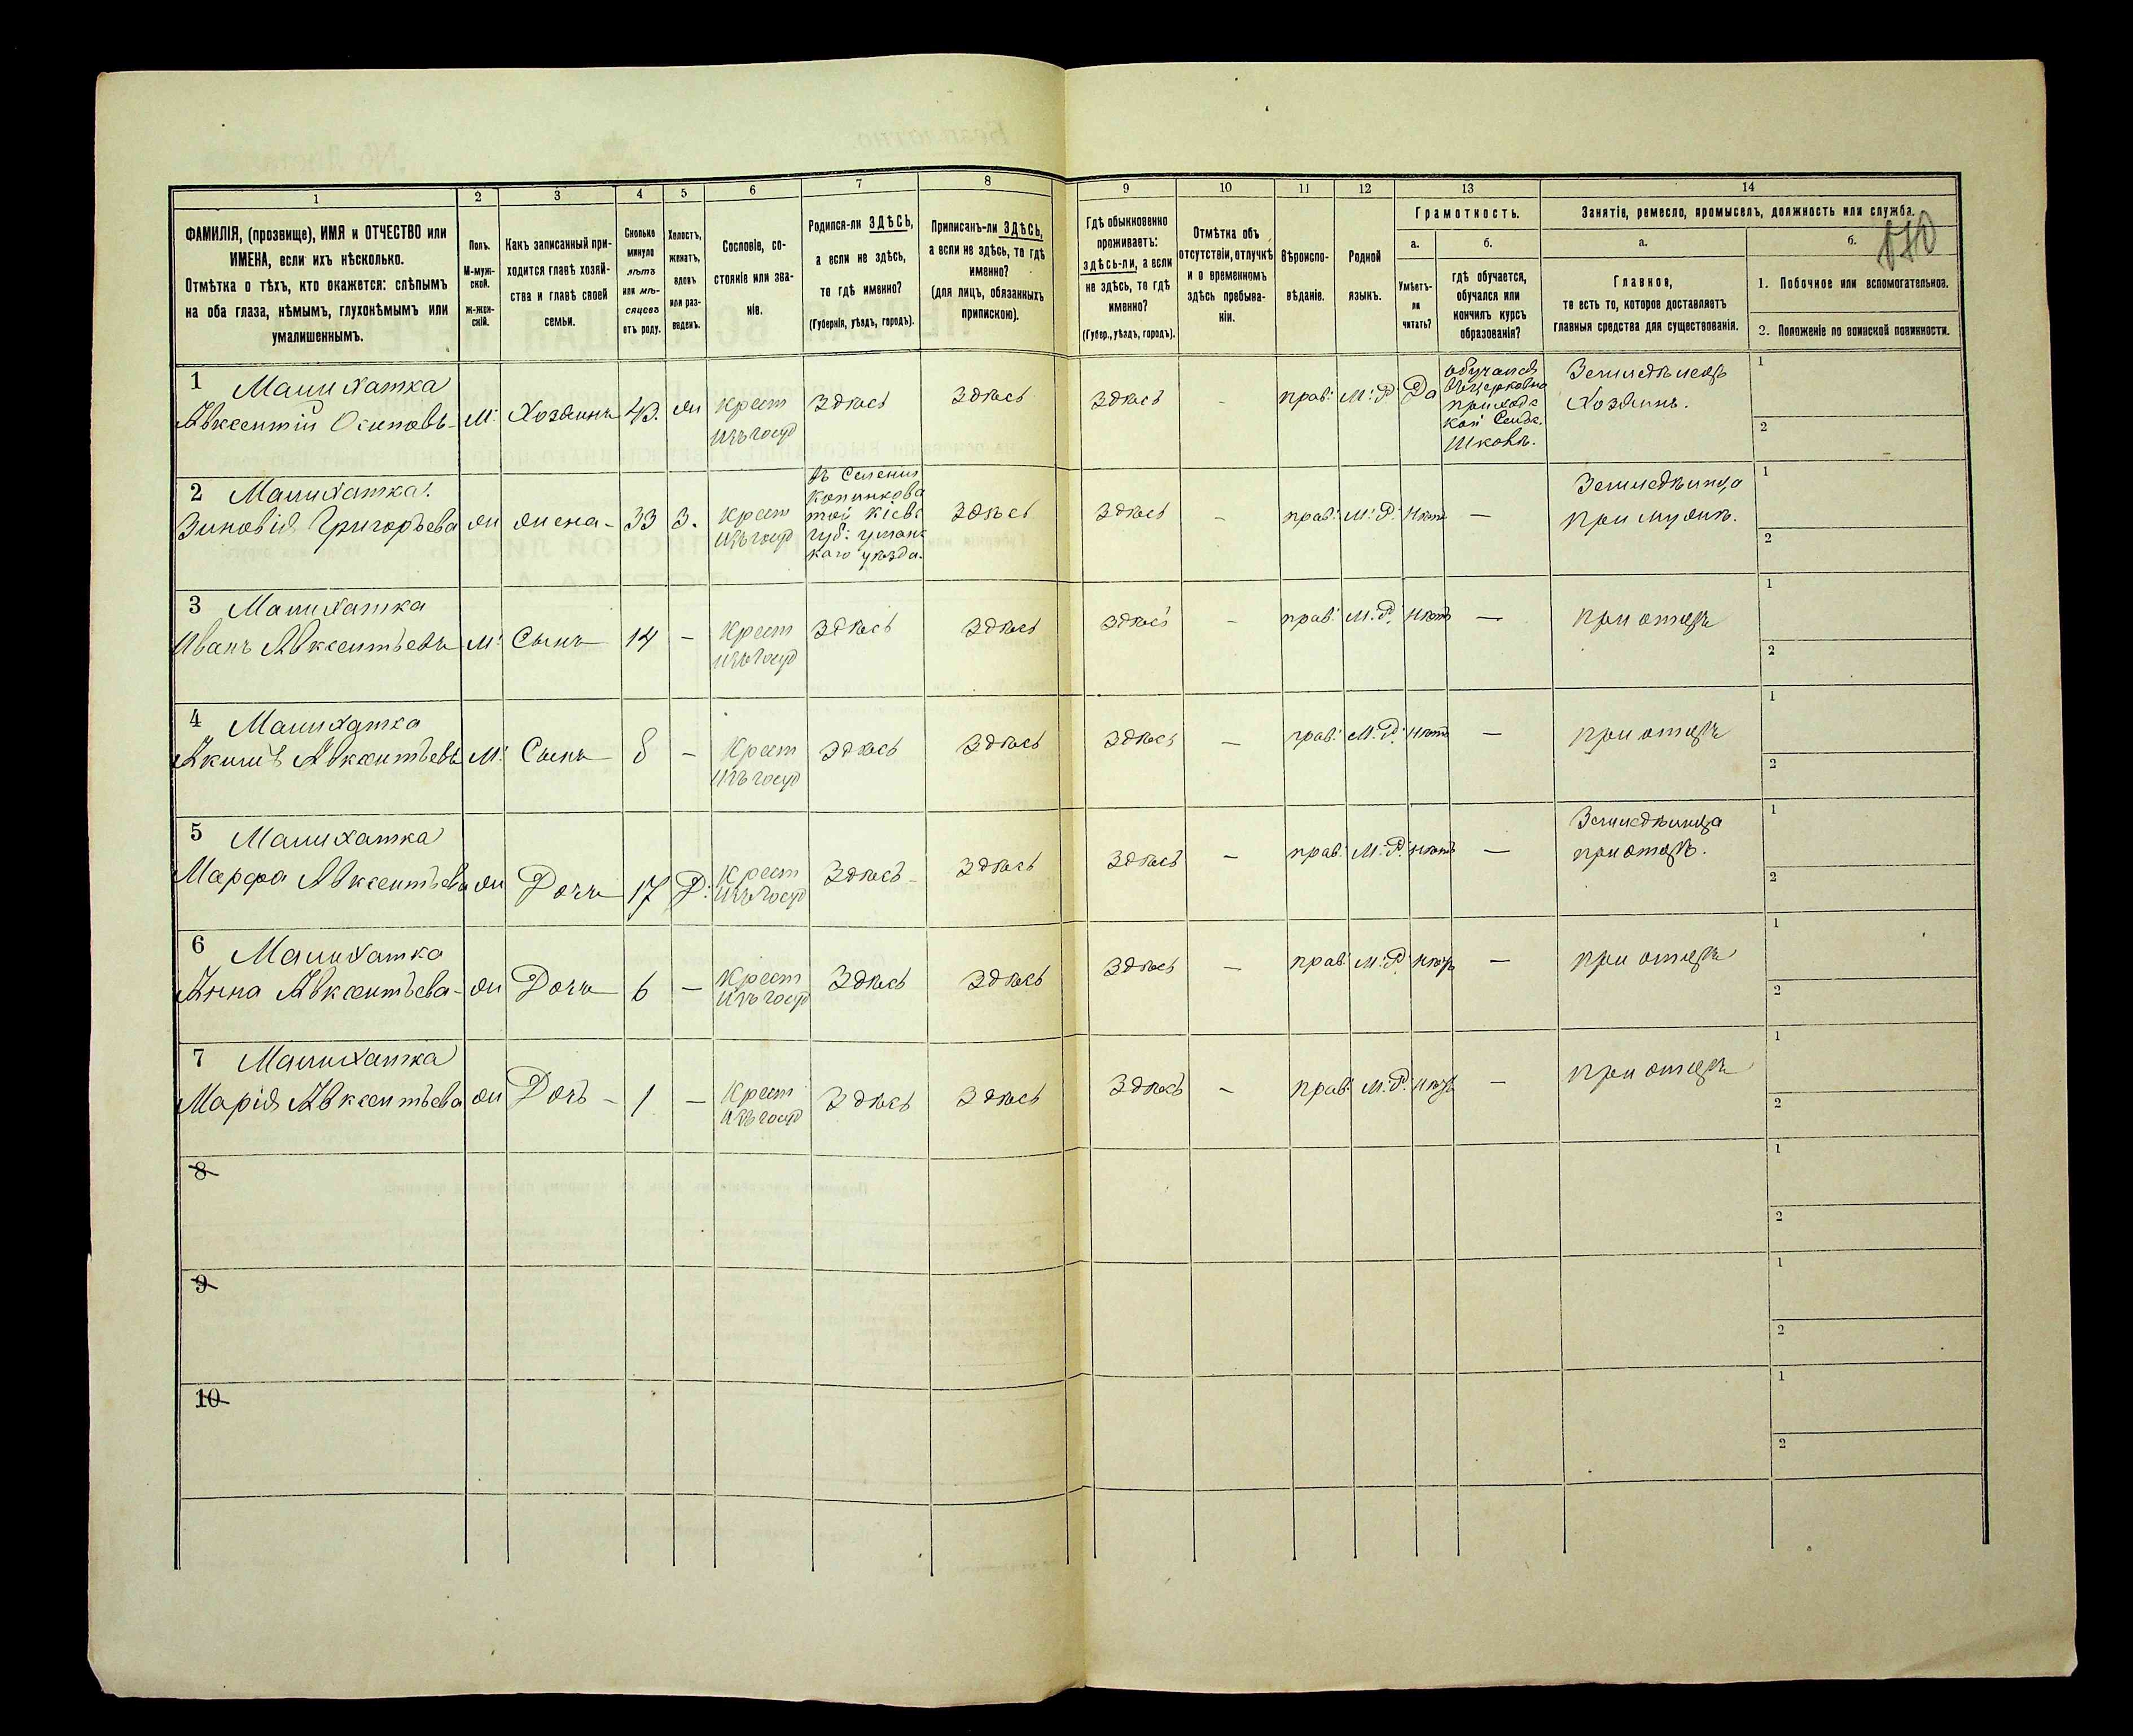 1
2
3
4
5
6
7
8
9
10
11
12
13
14
ФАМИЛІЯ, (прозвище), ИМЯ и ОТЧЕСТВО или
ИМЕНА, если ихъ нѣсколько.
Отмѣтка о тѣхъ, кто окажется: слѣпымъ
на оба глаза, нѣмымъ, глухонѣмымъ или
умалишеннымъ.
Полъ.
М-муж-
ской.
Ж-жен-
скій.
Какъ записанный при-
ходится главѣ хозяй-
ства и главѣ своей
семьи.
Сколько
минуло
лѣтъ
или мѣ-
сяцевъ
отъ роду.
Холостъ,
женатъ,
вдовъ
или раз-
веденъ.
Сословіе, со-
стояніе или зва-
ніе.
Родился-ли ЗДѢСЬ,
а если не здѣсь,
то гдѣ именно?
(Губернія, уѣздъ, городъ).
Приписанъ-ли ЗДѢСЬ,
а если не здѣсь, то гдѣ
именно?
(для лицъ, обязанныхъ
припискою).
Гдѣ обыкновенно
проживаетъ:
здѣсь-ли, а если
не здѣсь, то гдѣ
именно?
(Губер., уѣздъ, городъ).
Отмѣтка объ
отсутствіи, отлучкѣ
и о временномъ
здѣсь пребыва-
ніи.
Вѣроиспо-
вѣданіе.
Родной
языкъ.
Грамотность.
а.
Умѣетъ-
ли
читать?
б.
гдѣ обучается,
обучался или
кончилъ курсъ
образованія?
Занятіе, ремесло, промыселъ, должность или служба.
а.
Главное,
то есть то, которое доставляетъ
главныя средства для существованія.
б.
1. Побочное или вспомогательное.
2. Положеніе по воинской повинности.
1 Малихатка
Авксентій Осиповъ
М.
Хозяинъ
43
Крест
изъ госуд
Здѣсь
Здѣсь
Здѣсь
-
прав:
М: Р.
Да
обучался
въ церковно
приходс
кой Сельс.
школѣ.
Земледѣлецъ
Хозяинъ.
1
2
2 Малихатка
Зиновія Григорьева
ж
жена
33
З.
Крест
изъ госуд
въ Селеніи
той Кіевс
губ: уманс
каго уѣзда.
Здѣсь
Здѣсь
-
прав:
М: Р.
Нѣтъ
—
Земледѣлица
при мужѣ.
1
2
3 Малихатка
Иванъ Авксентьевъ
М:
Сынъ
14
-
Крест
изъ госуд
Здѣсь
Здѣсь
Здѣсь
-
прав:
М. Р.
Нѣтъ
—
при отцѣ
1
2
4 Малихатка
Акимъ Авксентьевъ
М:
Сынъ
8
-
Крест
изъ госуд
Здѣсь
Здѣсь
Здѣсь
—
прав:
М. Р.
Нѣтъ
—
при отцѣ
1
2
5 Малихатка
Марфа Авксентьева
ж
Дочь
17
Д:
Крест
изъ госуд
Здѣсь
Здѣсь
Здѣсь
—
прав:
М. Р.
Нѣтъ
—
Земледѣлица
при отцѣ.
1
2
6 Малихатка
Анна Авксентьева
ж
Дочь
6
—
Крест
изъ госуд
Здѣсь
Здѣсь
Здѣсь
—
прав:
М: Р.
Нѣтъ
—
при отцѣ
1
2
7 Малихатка
Марія Авксентьева
ж
Дочь
1
—
Крест
изъ госуд
Здѣсь
Здѣсь
Здѣсь
-
прав:
М. Р.
Нѣтъ
—
при отцѣ
1
2
8
1
2
9
1
2
10
1
2